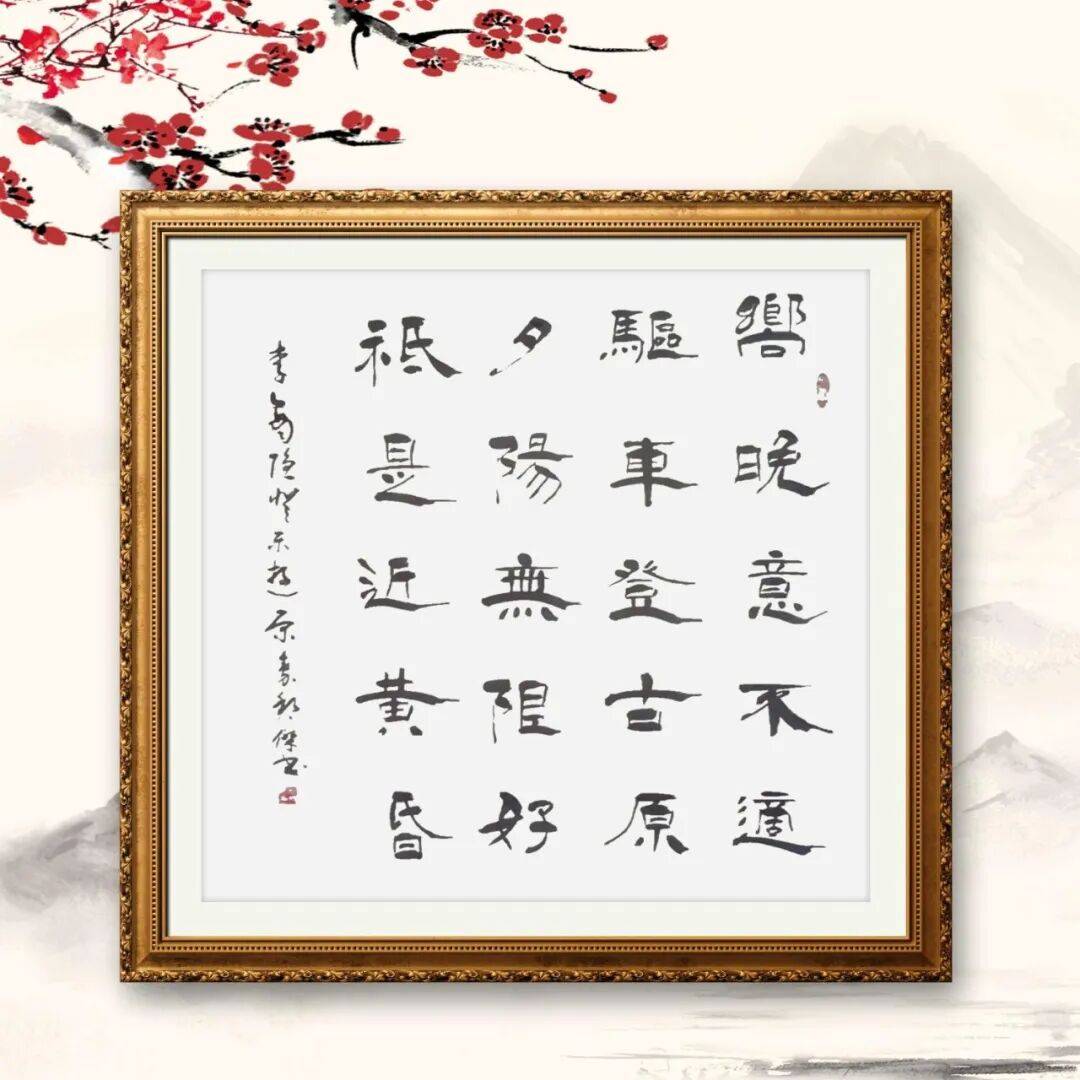 嚮晚意不適
驅車登古原
夕陽無限好
祗是近黄昏
李商隐登乐遊原